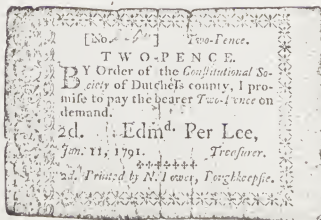 [No. ] Two-Pence.
TWO-PENCE.
BY Order of the Constitutional So-
ciety of Dutchess county, I pro-
mise to pay the bearer Two-Pence on
demand.
2d. Edmd. Per Lee,
Jan. 11, 1791. Treasurer.
2d. Printed by N. Power, Poughkeepsie.